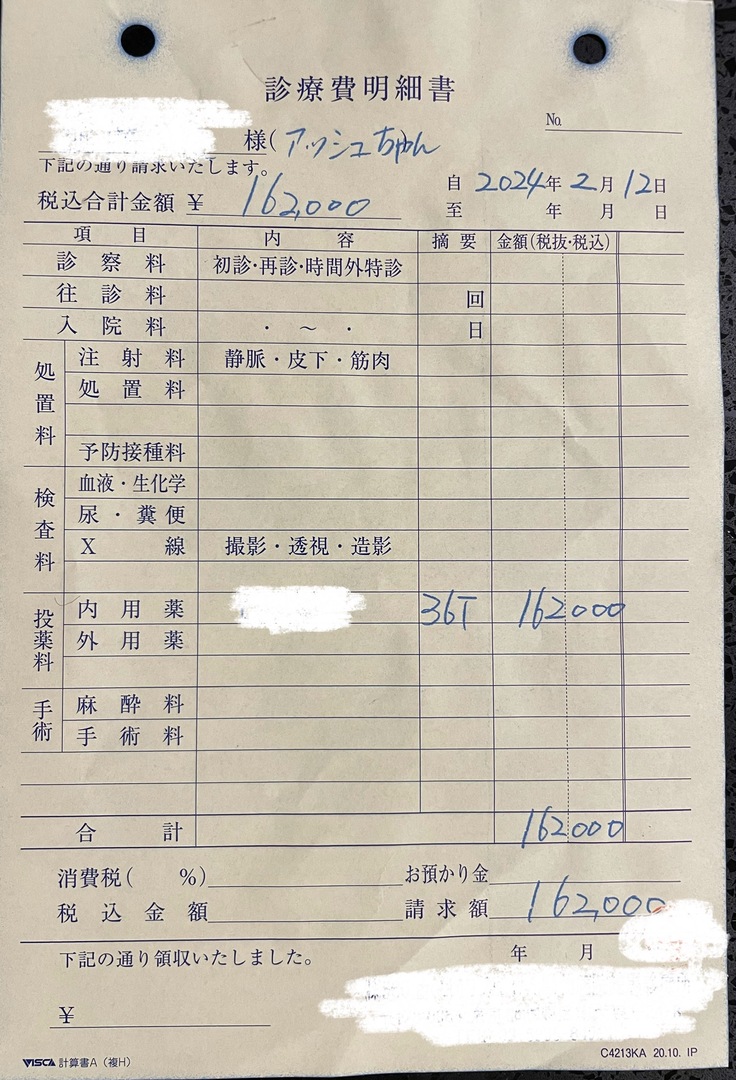 診療費明細書
No.
様(アッシュちゃん
下記の通り請求いたします。
税込合計金額 ¥ 162,000
自 2024年 2月 12日
至 年 月 日
項目 内容 摘要 金額(税抜・税込)
診察料 初診・再診・時間外特診
往診料 回
入院料 ・ ~ ・ 日
処置料
注射料 静脈・皮下・筋肉
処置料
予防接種料
検査料
血液・生化学
尿・糞便
X線 撮影・透視・造影
投薬料
内用薬 36T 162000
外用薬
手術
麻酔料
手術料
合計 162000
消費税( %) お預かり金
税込金額 請求額 162,000
下記の通り領収いたしました。 年 月
¥
VISCA 計算書A(複H) C4213KA 20.10. IP